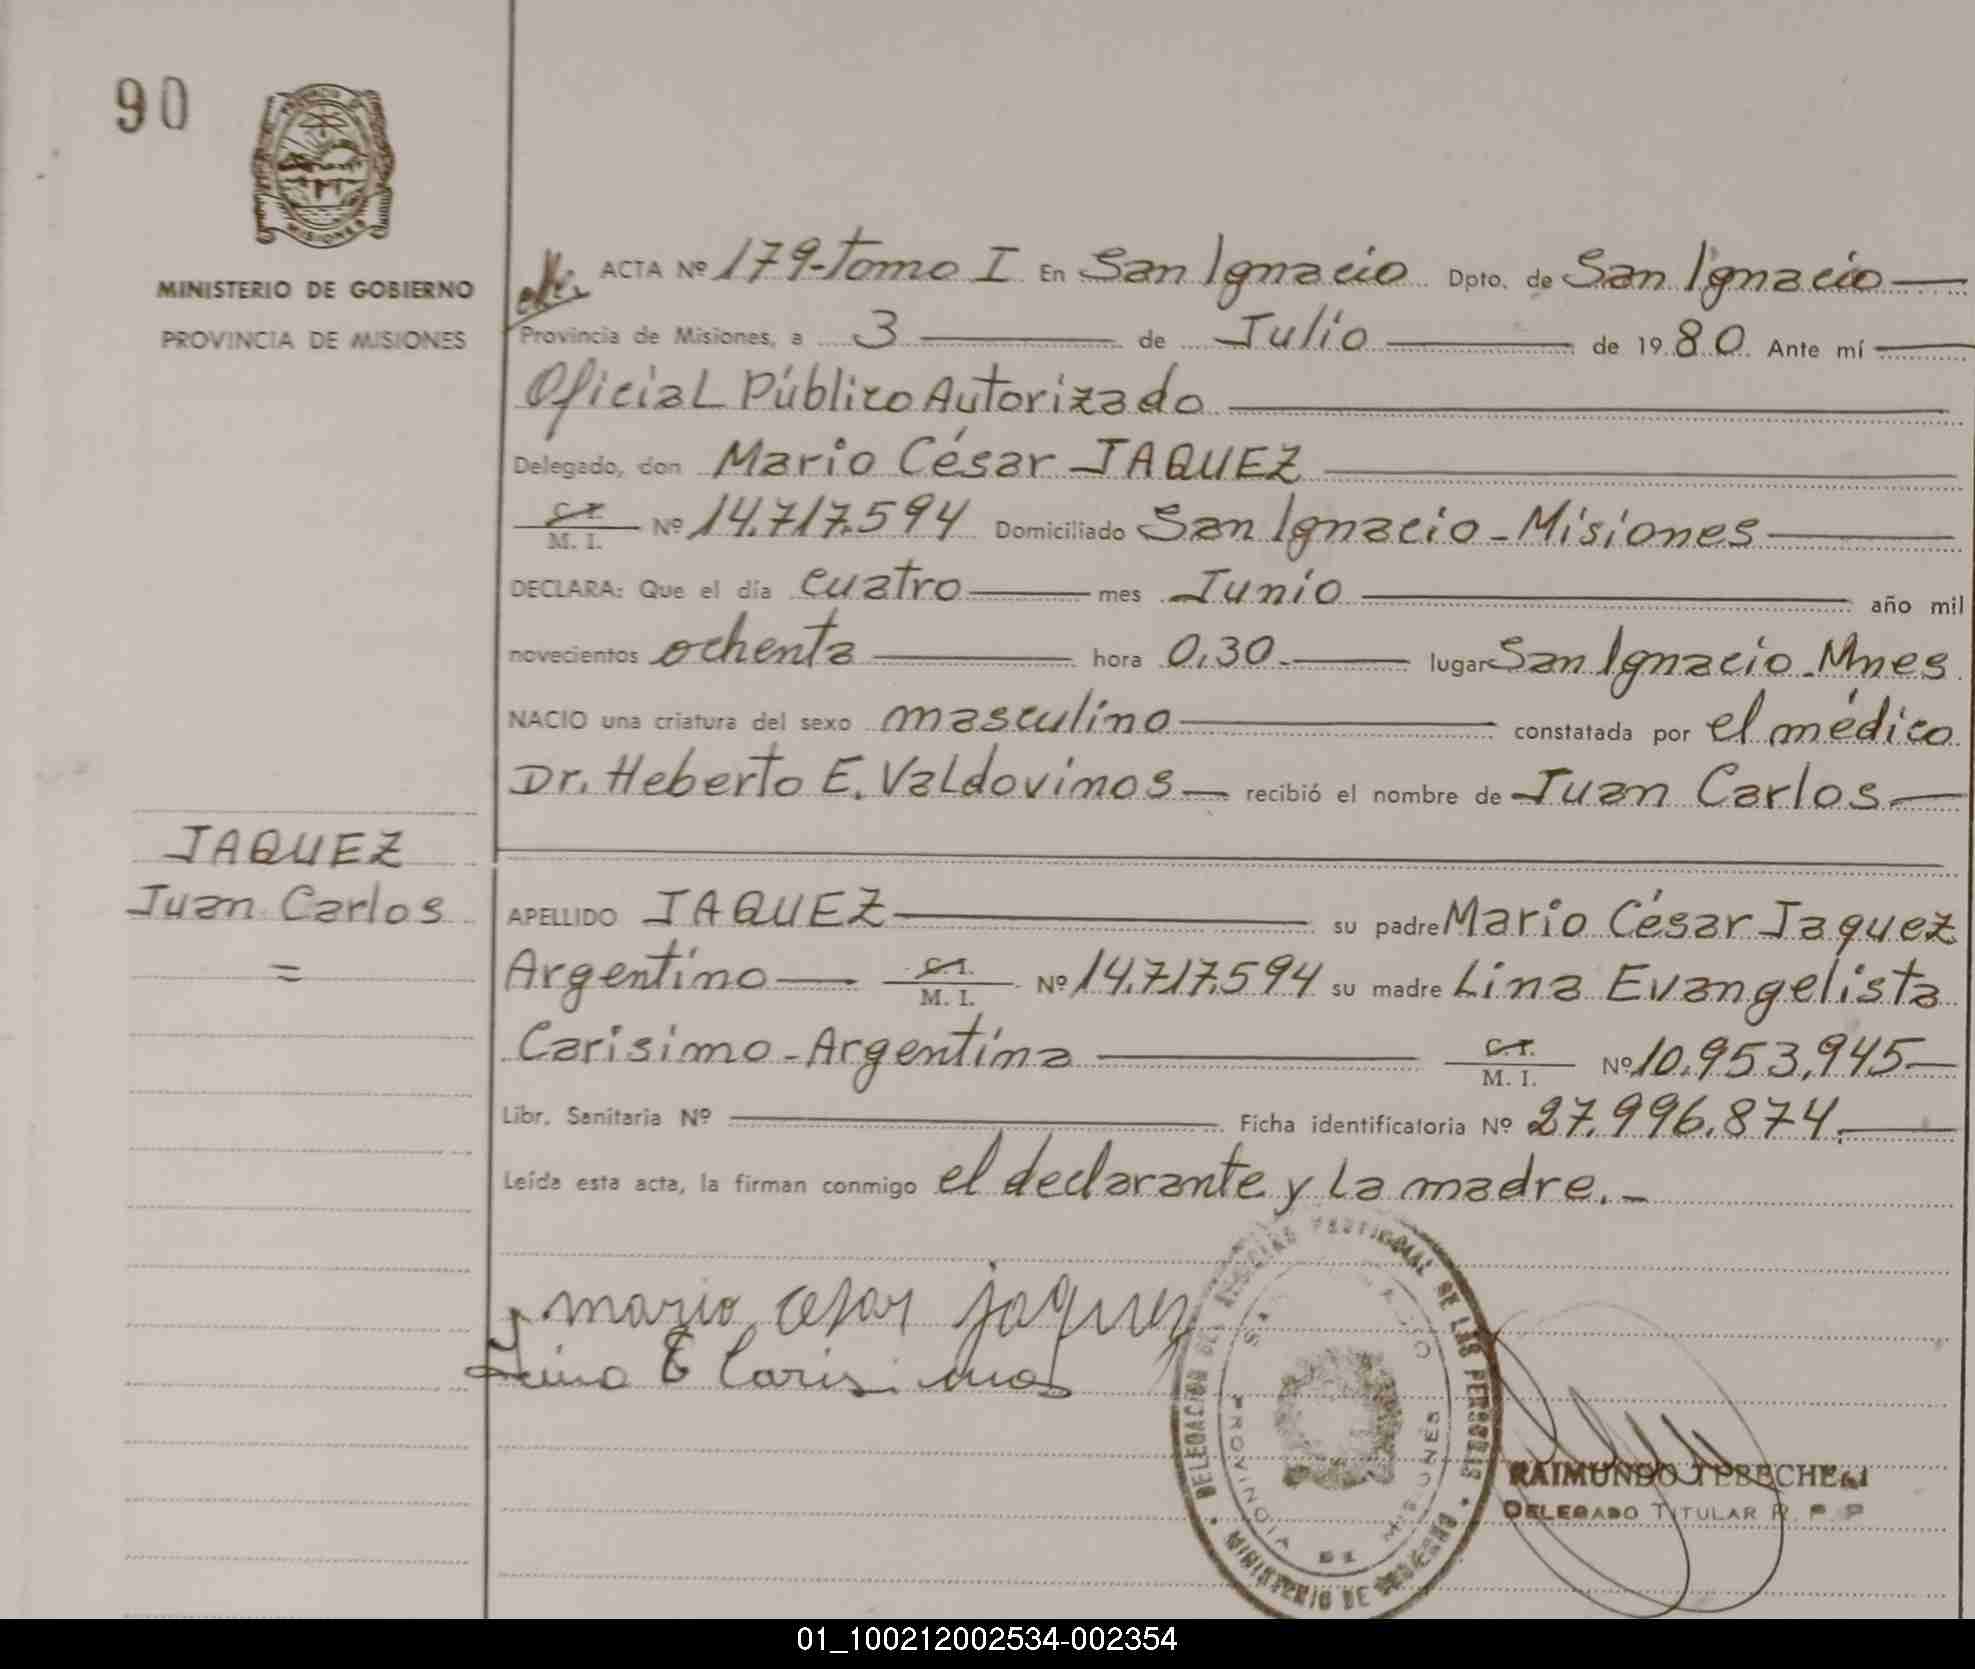 90
MISIONES
MINISTERIO DE GOBIERNO
PROVINCIA DE MISIONES
ACTA Nº 179-Tomo I En San Ignacio Dpto. de San Ignacio
Provincia de Misiones, a 3 de Julio de 1980 Ante mí
Oficial Público Autorizado
Delegado, don Mario César JAQUEZ
C.I.
M. I. Nº 14.717.594 Domiciliado San Ignacio - Misiones
DECLARA: Que el día cuatro mes Junio año mil
novecientos ochenta hora 0,30 lugar San Ignacio - Mnes
NACIO una criatura del sexo masculino constatada por el médico
Dr. Heberto E. Valdovinos recibió el nombre de Juan Carlos
JAQUEZ
Juan Carlos
=
APELLIDO JAQUEZ su padre Mario César Jaquez
Argentino C.I.
M. I. Nº 14.717.594 su madre Lina Evangelista
Carisimo - Argentina C.I.
M. I. Nº 10.953.945
Libr. Sanitaria Nº Ficha identificatoria Nº 27.996.874.
Leída esta acta, la firman conmigo el declarante y la madre.-
mario cesar jaquez
Lina E Carisimo
DELEGACION DEL REGISTRO PROVINCIAL DE LAS PERSONAS
PROVINCIA DE MISIONES
MINISTERIO DE GOBIERNO
RAIMUNDO
DELEGADO TITULAR R. P. P
01_100212002534-002354